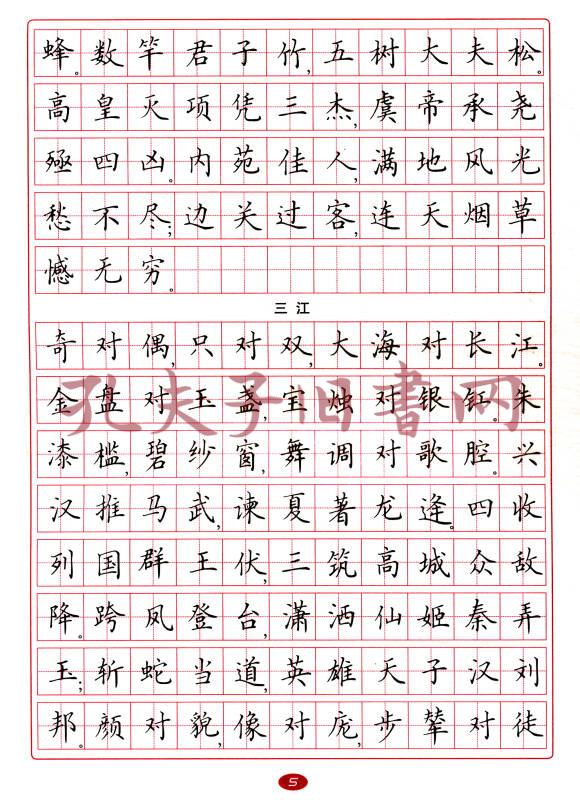 蜂。数竿君子竹，五树大夫松。
高皇灭项凭三杰，虞帝承尧
殛四凶。内苑佳人，满地风光
愁不尽；边关过客，连天烟草
憾无穷。
三江
奇对偶，只对双，大海对长江。
金盘对玉盏，宝烛对银釭。朱
漆槛，碧纱窗，舞调对歌腔。兴
汉推马武，谏夏著龙逄。四收
列国群王伏，三筑高城众敌
降。跨凤登台，潇洒仙姬秦弄
玉；斩蛇当道，英雄天子汉刘
邦。颜对貌，像对庞，步辇对徒
孔夫子旧书网
5